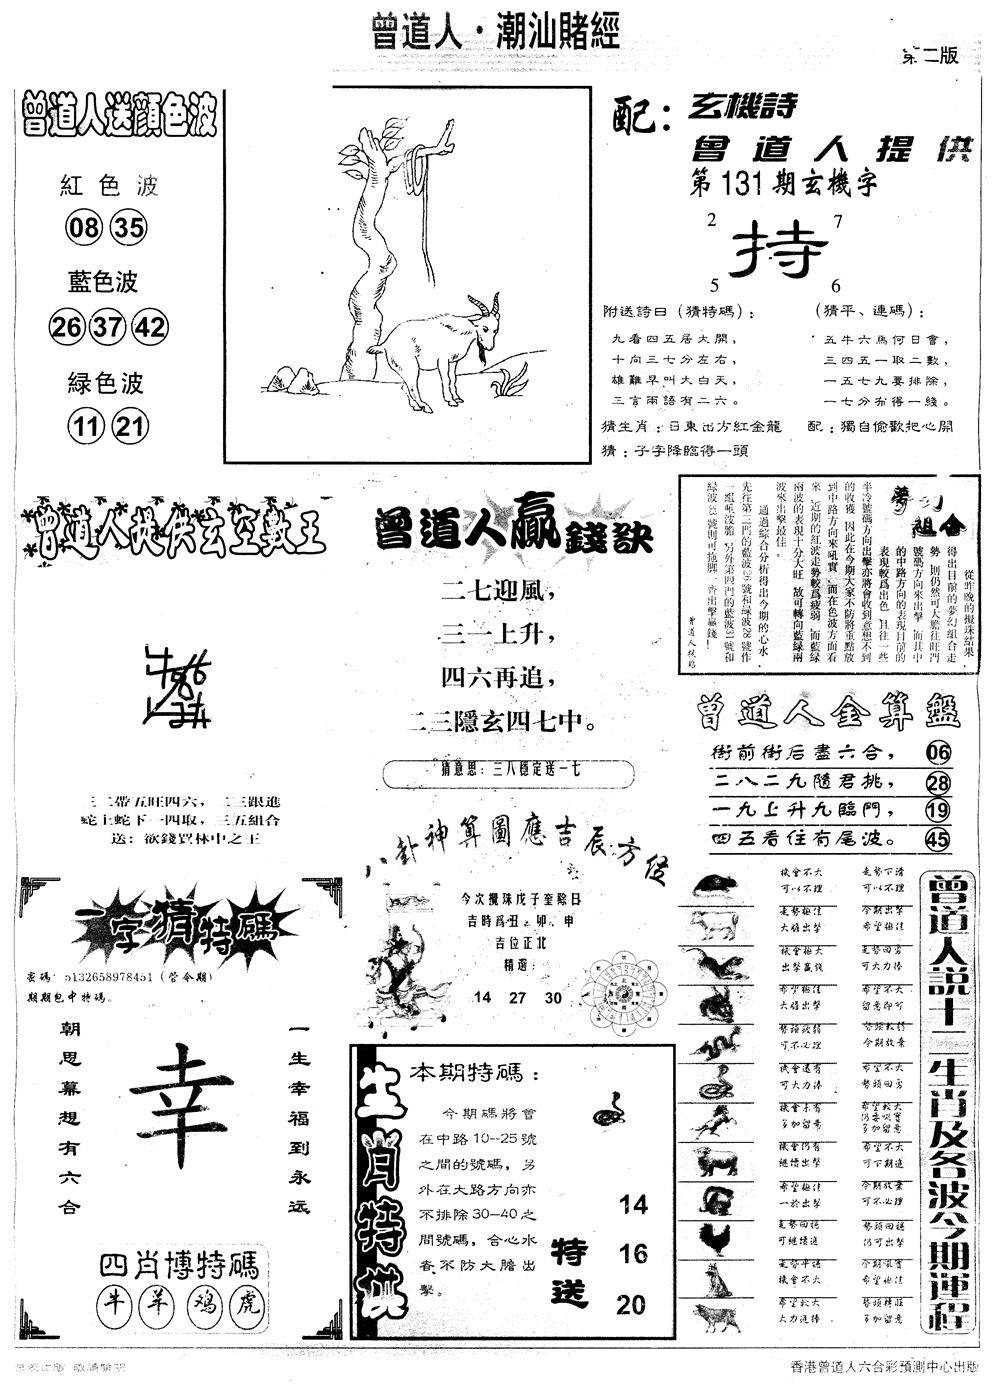 曾道人·潮汕賭經
第二版
曾道人送顔色波
紅色波
08 35
藍色波
26 37 42
緑色波
11 21
配：玄機詩
曾道人提供
第131期玄機字
2 7
持
5 6
附送詩曰（猜特碼）：
九看四五居大開，
十向三七分左右，
雄難早叫大白天，
三言兩語有二六。
（猜平、連碼）：
五牛六馬何日會，
三四五一取二數，
一五七九要排除，
一七分布得一綫。
猜生肖：日東出方紅金龍
配：獨自偷歡把心開
猜：子字降臨得一頭
曾道人提供玄空數王
三二帶五旺四六，二三跟進
蛇上蛇下一四取，三五組合
送：欲錢買林中之王
曾道人贏錢訣
二七迎風，
三一上升，
四六再追，
二三隱玄四七中。
猜意思：三八穩定送一七
夢幻組合
從昨晚的攪珠結果
得出目前的夢幻組合走
勢，則仍然可大膽往旺門
號碼方向來出擊，而其中
的中路方向的表現目前的
表現較爲出色，且往一些
半冷號碼方向出擊亦將會收到意想不到
的收獲，因此在今期大家不防將重點放
到中路方向來吼實，而在色波方面看
來，近期的紅波走勢較爲疲弱，而藍緑
兩波的表現十分大旺，故可轉向藍緑兩
波來出擊最佳。
通過綜合分析得出今期的心水，
先往第三門的藍波26號和緑波28號作
一組啤波膽，另外第四門的藍波31號和
緑波33號則可拖脚，齊出擊贏錢！
曾道人提供
曾道人金算盤
街前街后盡六合， 06
二八二九隨君挑， 28
一九上升九臨門， 19
四五看住有尾波。 45
八卦神算圖應吉辰方位
今次攪珠戊子奎除日
吉時爲丑、卯、申
吉位正北
精選：
14 27 30
一字猜特碼
密碼：5132658978451（管令期）
期期包中特碼。
朝思幕想有六合
幸
一生幸福到永远
四肖博特碼
牛 羊 鸡 虎
生肖特供
本期特碼：
今期碼將會
在中路10--25號
之間的號碼，另
外在大路方向亦
不排除30--40之
間號碼，合心水
者不防大膽出
擊。
特送
14
16
20
曾道人説十二生肖及各波今期運程
機會不大
可以不理
走勢下滑
可以不理
走勢極佳
大膽出擊
今期出擊
希望極佳
機會極大
出擊贏錢
走勢回勇
可大力捧
希望極佳
大膽出擊
希望不大
留意即可
勢頭疲弱
可不必理
勢頭較弱
今期放棄
機會還有
可大力捧
希望不大
勢頭回勇
機會未有
多加留意
希望較大
仍要吼實
多加留意
機會仍有
繼續出擊
希望不大
可下期追
希望極佳
一於出擊
今期放棄
可不必理
走勢回穩
可繼續追
勢頭回穩
仍可出擊
走勢平穩
機會不大
今期吼實
希望極佳
希望較大
大力追捧
勢頭轉旺
多加留意
香港曾道人六合彩預測中心出版